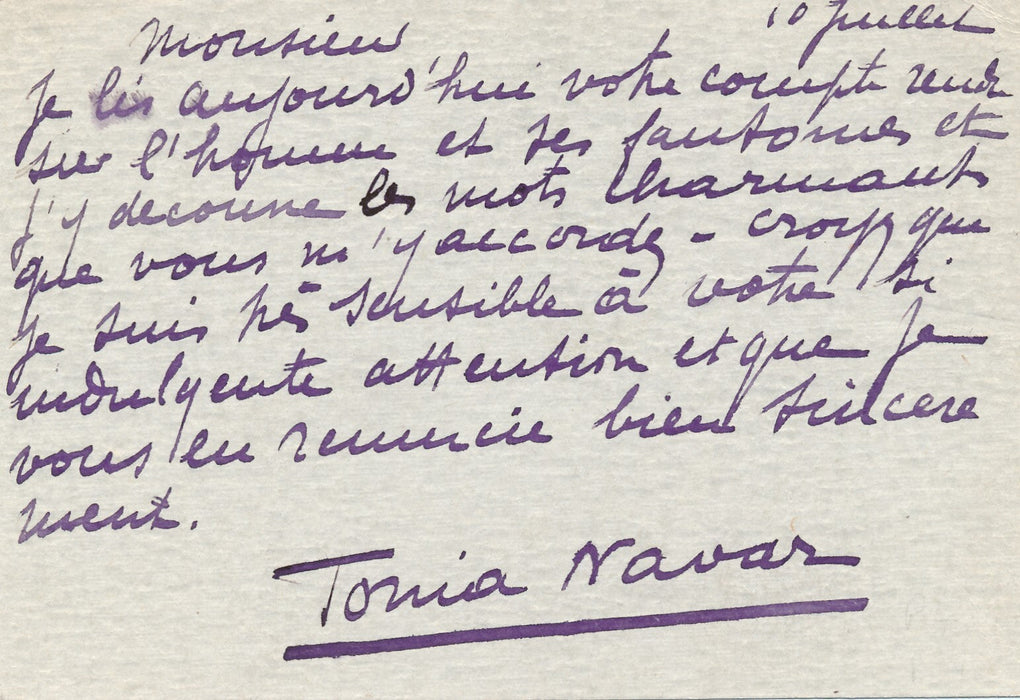 10 Juillet
Monsieur
Je lis aujourd'hui votre compte rendu
sur l'homme et ses fantomes et
j'y decouvre les mots charmants
que vous m'y accordez - croyez que
je suis très sensible à votre si
indulgente attention et que je
vous en remercie bien sincere
ment.
Tonia Navar